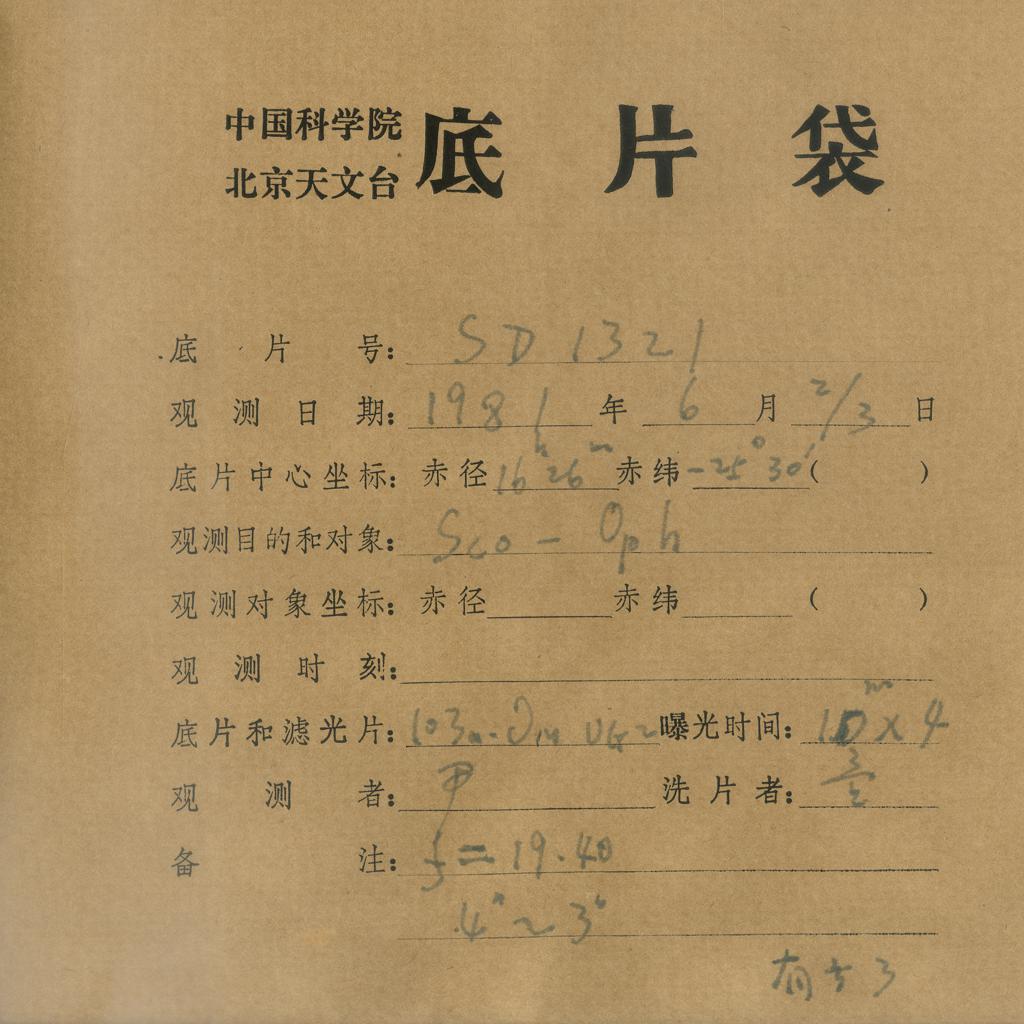 中国科学院
北京天文台
底片袋
底片号: SD1321
观测日期: 1981年6月2/3日
底片中心坐标: 赤径16h26m赤纬-25°30′( )
观测目的和对象: Sco-Oph
观测对象坐标: 赤径 赤纬 ( )
观测时刻:
底片和滤光片: UG2 曝光时间: 10m×4
观测者: 洗片者:
备注: f=19.40